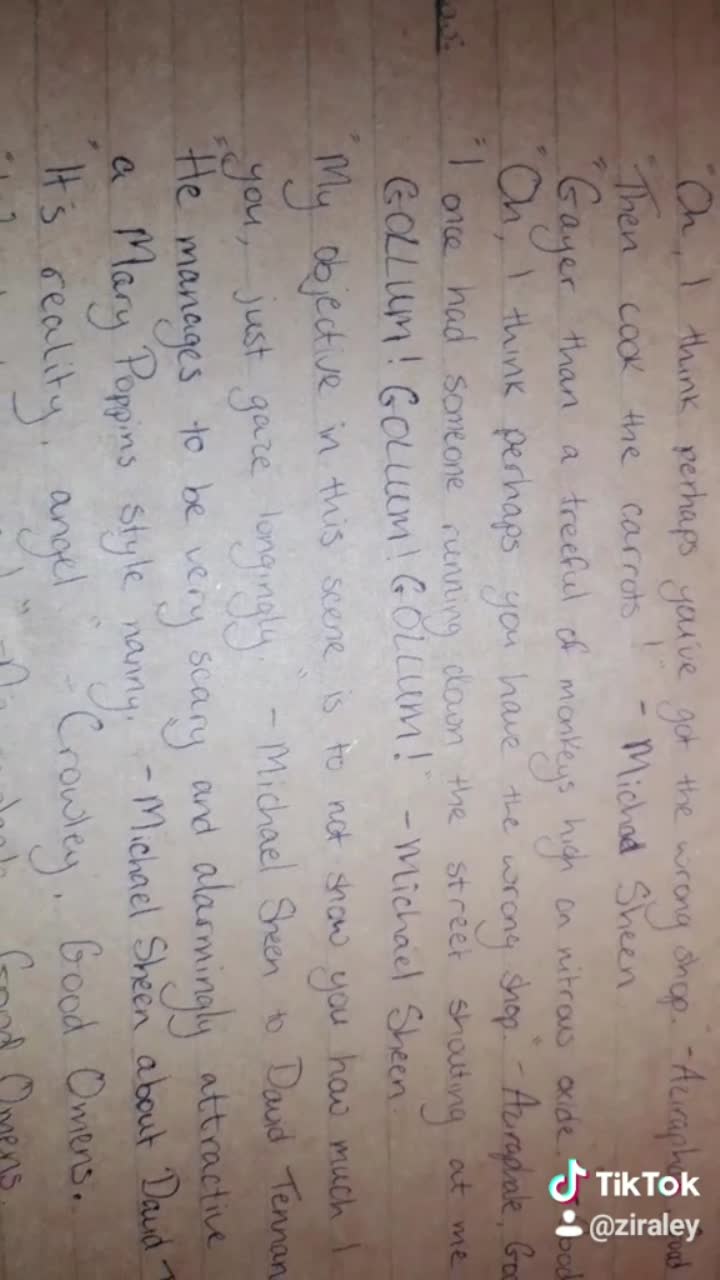 "Oh, I think perhaps you've got the wrong shop. - Aziraph
"Then cook the carrots!" - Michael Sheen
"Gayer than a treeful of monkeys high on nitrous oxide.
"Oh, I think perhaps you have the wrong shop." - Aziraphale, Go
"I once had someone running down the street shouting at me
GOLLUM! GOLLUM! GOLLUM!" - Michael Sheen.
"My objective in this scene is to not show you how much I
you, just gaze longingly." - Michael Sheen to David Tennan
"He manages to be very scary and alarmingly attractive
a Mary Poppins style nanny. - Michael Sheen about David T
"It's reality, angel" - Crowley, Good Omens.
Good Omens
TikTok
@ziraley